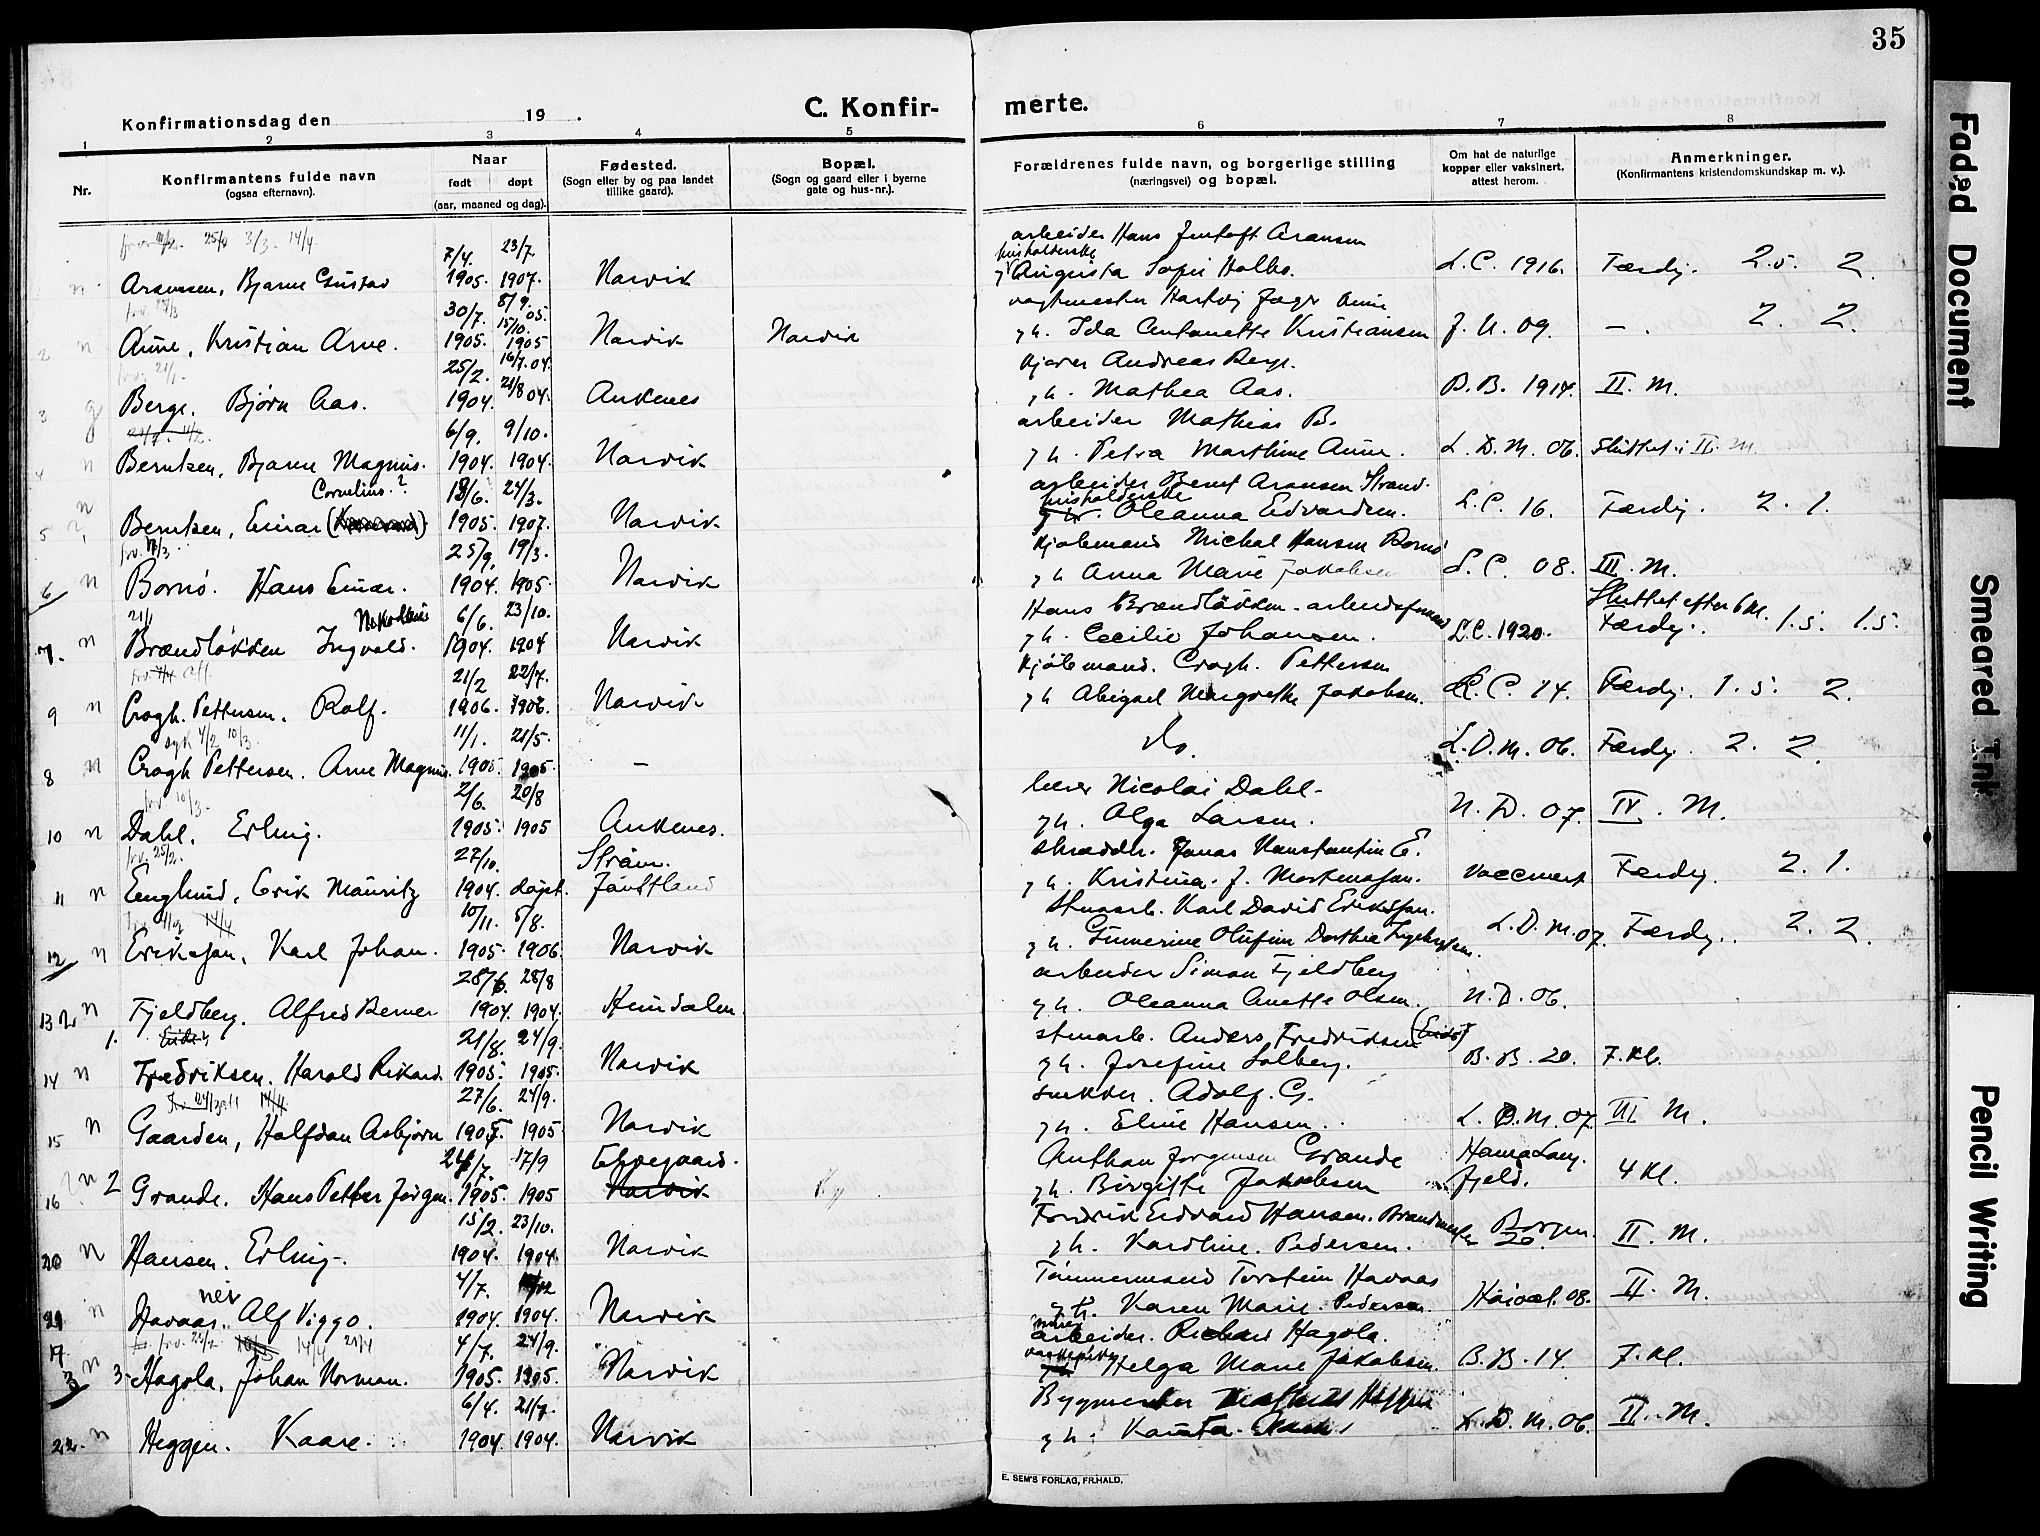 35
Konfirmationsdag den 19 .
C. Konfir-
merte.
1 2 3 4 5
6 7 8
Nr.
Konfirmantens fulde navn
(ogsaa efternavn).
Naar
født døpt
(aar, maaned og dag).
Fødested.
(Sogn eller by og paa landet
tillike gaard).
Bopæl.
(Sogn og gaard eller i byerne
gate og hus-nr.).
Forældrenes fulde navn, og borgerlige stilling
(næringsvei) og bopæl.
Om hat de naturlige
kopper eller vaksinert,
attest herom.
Anmerkninger.
(Konfirmantens kristendomskundskap m. v.).
25/9 3/3 14/4
7/4. 23/7
arbeider Hans Aronsen
husholderske
Aronsen, Bjarne Gustav 1905. 1907. Narvik
Augusta Sofie Holbo. L.C. 1916. Færdig. 2.5. 2.
30/7. 8/9.05. 15/10.
2 n Aune, Kristian Arne. 1905. 1905 Narvik Narvik
g h. Ida Antonette Kristiansen J. U. 09. — . 2. 2.
25/2. 16/7.04. 21/8 04.
kjører Andreas Berge.
3 g Berge. Bjørn Aas. 1904. Ankenes
g h. Mathea Aas. B.B. 1914. II. M.
6/9. 9/10.
arbeider Mathias B.
4 n Berntsen, Bjarne Magnus. 1904. 1904. Narvik
g h. Petra Marthine Aune. L.D.M. 06. Sluttet i II. M.
Cornelius.? 13/6. 24/3.
arbeider Bernt Aronsen Strand.
husholderske
5 n Berntsen, Einar 1905. 1907. Narvik
Oleanna Edvardsen. L.C. 16. Færdig. 2. 1.
25/9. 19/3.
Kjøbmand Michal Hansen Bornø
6 n Bornø. Hans Einar. 1904. 1905 Narvik
g h Anna Marie Jakobsen L.C. 08. III. M.
21/1 Nikolai 6/6. 23/10.
Hans Brændløkken - arbeidsformand
Sluttet efter 6 kl.
7. n Brændløkken Ingvald. 1904. 1904 Narvik
g h. Cecilie Johansen. L.C. 1920. Færdig. 1.5. 1.5.
21/2 22/7.
Kjøbmand. Crogh. Pettersen
9 n Crogh. Pettersen. Rolf. 1906. 1906. Narvik
g h Abigael Margrethe Jakobsen. L.C. 14. Færdig. 1.5. 2.
syk 4/2 10/3. 11/1. 21/5.
8 n Crogh Pettersen. Arne Magnus. 1905. 1905. —
do. L.D.M. 06. Færdig. 2. 2.
10/3. 2/6. 20/8
lærer Nicolai Dahl.
10 n Dahl. Erling. 1905. 1905 Ankenes.
g h. Olga Larsen. N. D. 07. IV. M.
25/2. 27/10. Strøm.
skrædder. Jonas Konstantin E.
11 n Eenglund, Erik Mauritz 1904. døpt. Jämtland
g h. Kristina. J. Markusson. Vaccinert Færdig. 2. 1.
14/4 10/11. 5/8.
Karl David Eriksson.
12 n Eriksson, Karl Johan. 1905. 1906. Narvik
g h. Olufine Dorthea L.D.M. 07. Færdig. 2. 2.
28/6. 28/8
arbeider Simon Fjeldberg
13 n Fjeldberg. Alfred Berner 1904. 1904. Heimdalen.
g h. Oleanna Anette Olsen. N. D. 06.
1. 21/8. 24/9.
Anders Fredriksen
14 n Fredriksen. Harald Rikard. 1905. 1905. Narvik
g h. Josefine Solberg. B. B. 20. 7. kl.
14/4 27/6. 24/9.
snekker. Adolf. G.
15 n Gaarden, Halfdan Asbjørn 1905. 1905. Narvik
g h. Eline Hansen. L.D.M. 07. III. M.
24/7. 17/9
Anthon Jørgensen Grande Hanna Lang-
16 n 2 Grande. Hans Petter Jørgen. 1905. 1905 Narvik
g h. Birgitte Jakobsen fjeld. 4 Kl.
15/2. 23/10.
Fredrik Edvard Hansen. Brandmester
20 n Hansen. Erling. 1904. 1904. Narvik
g h. Karoline. Pedersen. Borgen 20. II. M.
4/7.
Tømmermand Torstein Havaas
nei
21 n Havaas. Alf Viggo. 1904. 1904. Narvik
g h. Karen Marie Pedersen. 08. II. M.
14/4 21/4 4/7. 24/9.
arbeider. Richard Hagola.
17. n 3 Hagola, Johan Norman. 1905. 1905. Narvik
vaskepike Helga Marie Jakobsen. B.B. 14. 7. kl.
6/4. 21/7.
Bygmester
22. n Heggen. Kaare. 1904. 1904. Narvik
g h. L.D.M. 06. II. M.
E. SEM'S FORLAG, FR.HALD.
Faded Document
Smeared Ink
Pencil Writing